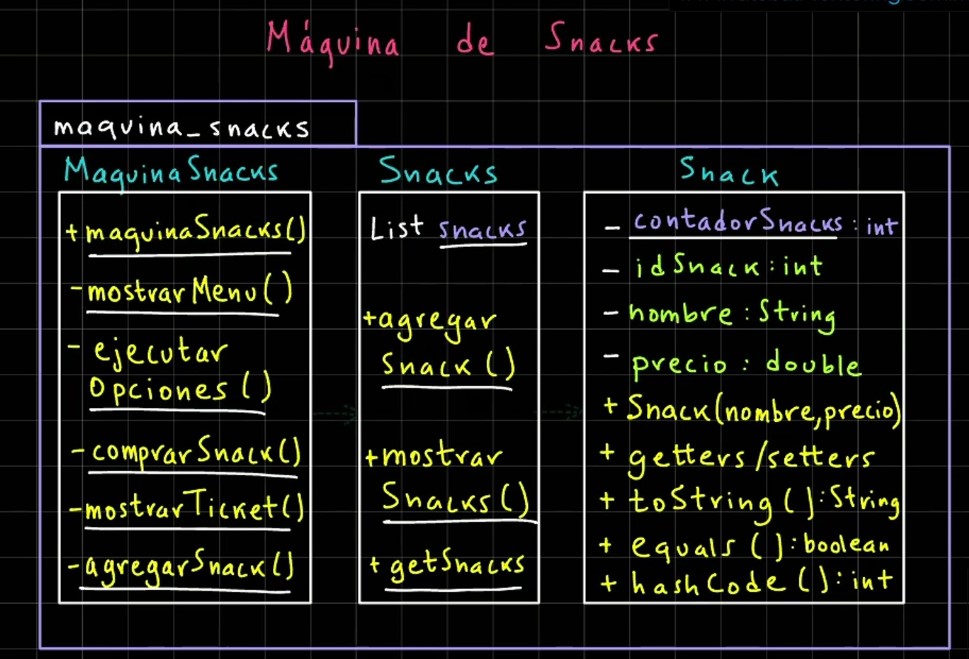 Máquina de Snacks
maquina_snacks
MaquinaSnacks
+ maquinaSnacks()
- mostrarMenu()
- ejecutar
Opciones()
- comprarSnack()
- mostrarTicket()
- agregarSnack()
Snacks
List snacks
+agregar
Snack()
+mostrar
Snacks()
+ getSnacks
Snack
- contadorSnacks: int
- idSnack: int
- nombre: String
- precio: double
+ Snack(nombre,precio)
+ getters/setters
+ toString(): String
+ equals(): boolean
+ hashCode(): int